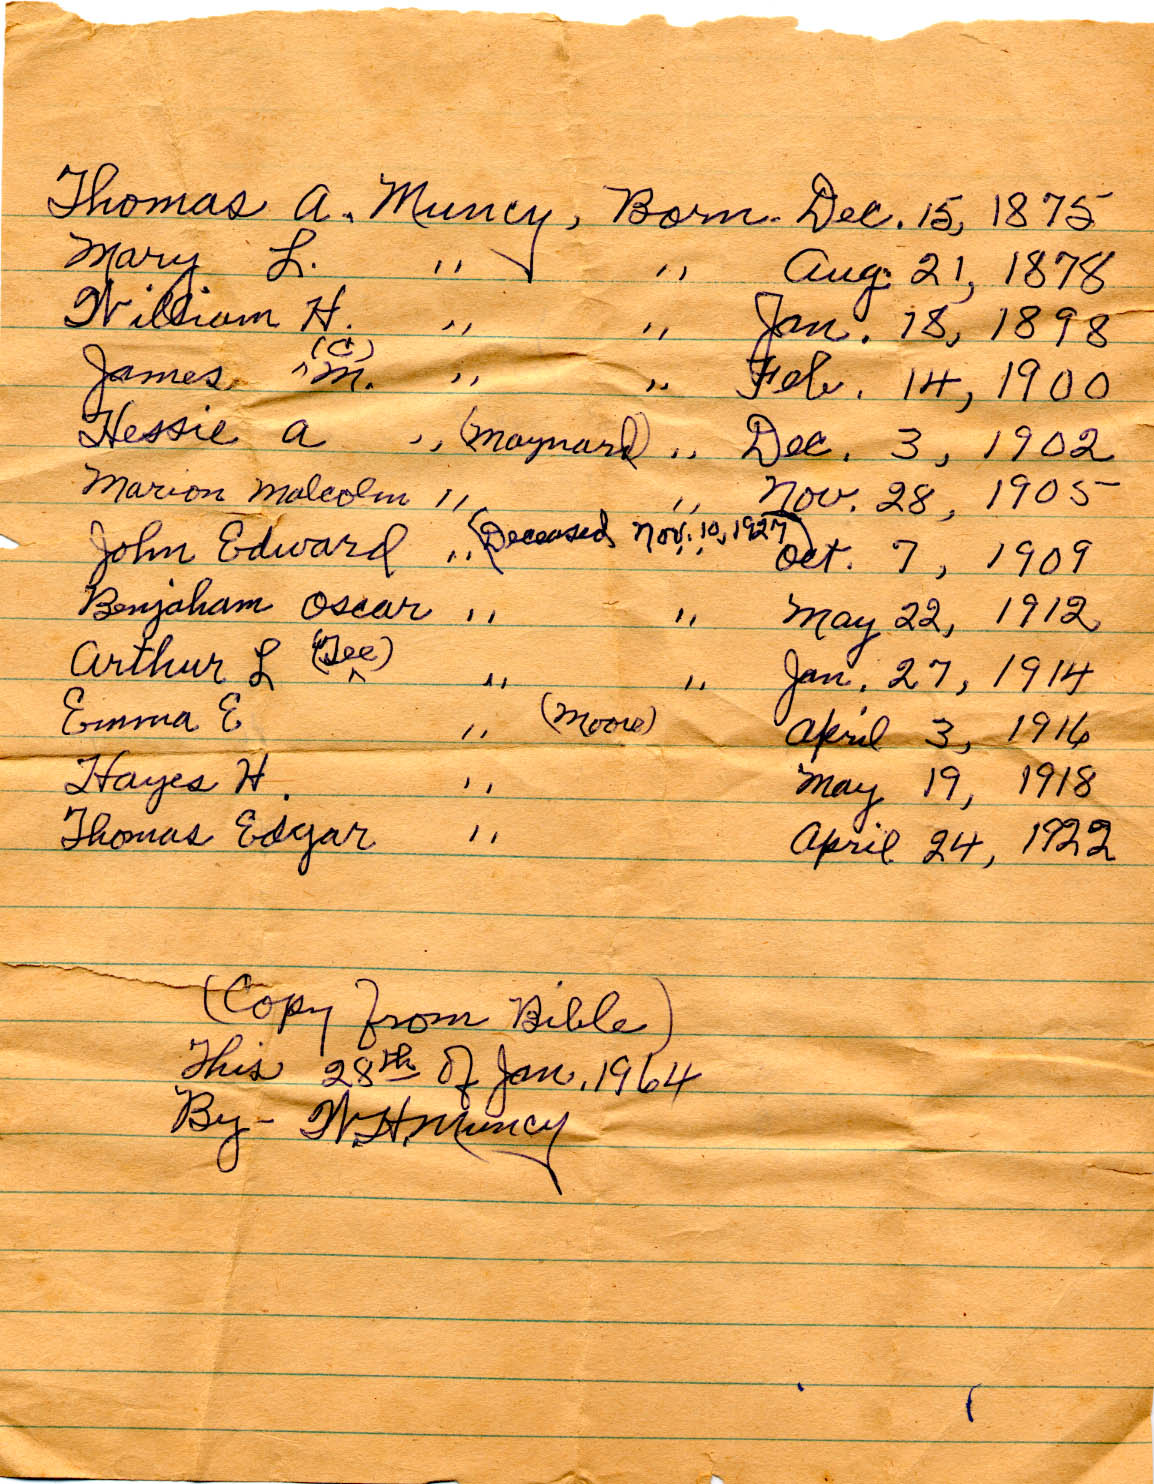 Thomas A. Muncy, Born Dec. 15, 1875
Mary L. " " Aug. 21, 1878
William H. " " Jan. 18, 1898
(C)
James M. " " Feb. 14, 1900
Hessie A " (Maynard) " Dec. 3, 1902
Marion Malcolm " " Nov. 28, 1905
(Deceased Nov. 10, 1927)
John Edward " " Oct. 7, 1909
Benjaham Oscar " " May 22, 1912
Arthur L (Tee) " " Jan. 27, 1914
Emma E " (Moore) April 3, 1916
Hayes H. " May 19, 1918
Thomas Edgar " April 24, 1922
(Copy from Bible)
This 28th of Jan. 1964
By - W.H. Muncy